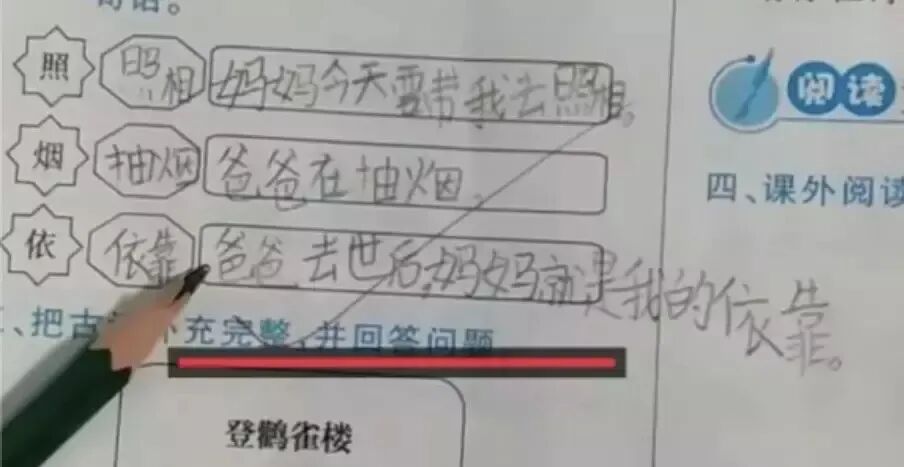 句话。
照 照相 妈妈今天要带我去照相。
烟 抽烟 爸爸在抽烟.
依 依靠 爸爸去世后,妈妈就是我的依靠。
、把古 补充完整,并回答问题
登鹳雀楼
阅读
四、课外阅读